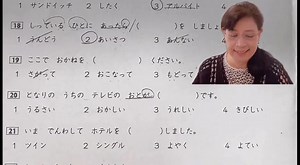 1 サンドイッチ 2 したく 3 アルバイト
18 しっている ひとに あったら ( )を しましょ
1 うんどう 2 あいさつ 3 あんない
19 ここで おかねを ( ) ください。
1 さがって 2 おこなって 3 もどって
20 となりの うちの テレビの おとが ( )です。
1 うるさい 2 おかしい 3 うれしい 4 きびしい
21 いま でんわして ホテルを ( )しました。
1 ツイン 2 シングル 3 よやく 4 よてい